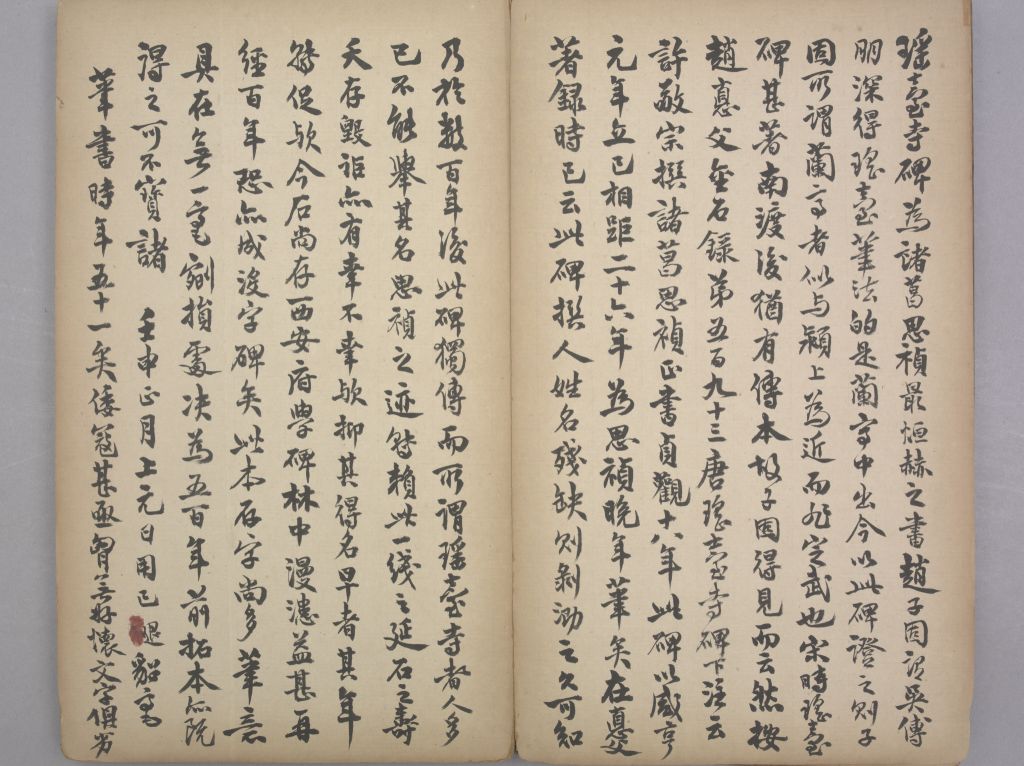 瑶臺寺碑為諸葛思禎最烜赫之書趙子固謂吳傅
朋深得瑤臺筆法的是蘭亭中出今以此碑證之則子
固所謂蘭亭者似与潁上為近而非定武也宋時瑤臺
碑甚著南渡後猶有傳本故子固得見而云然按
趙惪父金石錄第五百九十三唐瑤臺寺碑下注云
許敬宗撰諸葛思禎正書貞觀十八年此碑以咸亨
元年立已相距二十六年為思禎晚年筆矣在惪父
著録時已云此碑撰人姓名殘缺則剝泐之久可知
乃於數百年後此碑獨傳而所謂瑶臺寺者人多
已不能舉其名思禎之迹將賴此一綫之延石之壽
夭存毀詎亦有幸不幸歟抑其得名早者其年
將促歟今石尚存西安府學碑林中漫漶益甚再
經百年恐亦成没字碑矣此本存字尚多筆意
具在無一毫剜損處決為五百年前拓本亦既
得之可不寶諸 壬申正月上元日用已退貂毫
筆書時年五十一矣倭寇甚亟胷無好懷文字俱劣